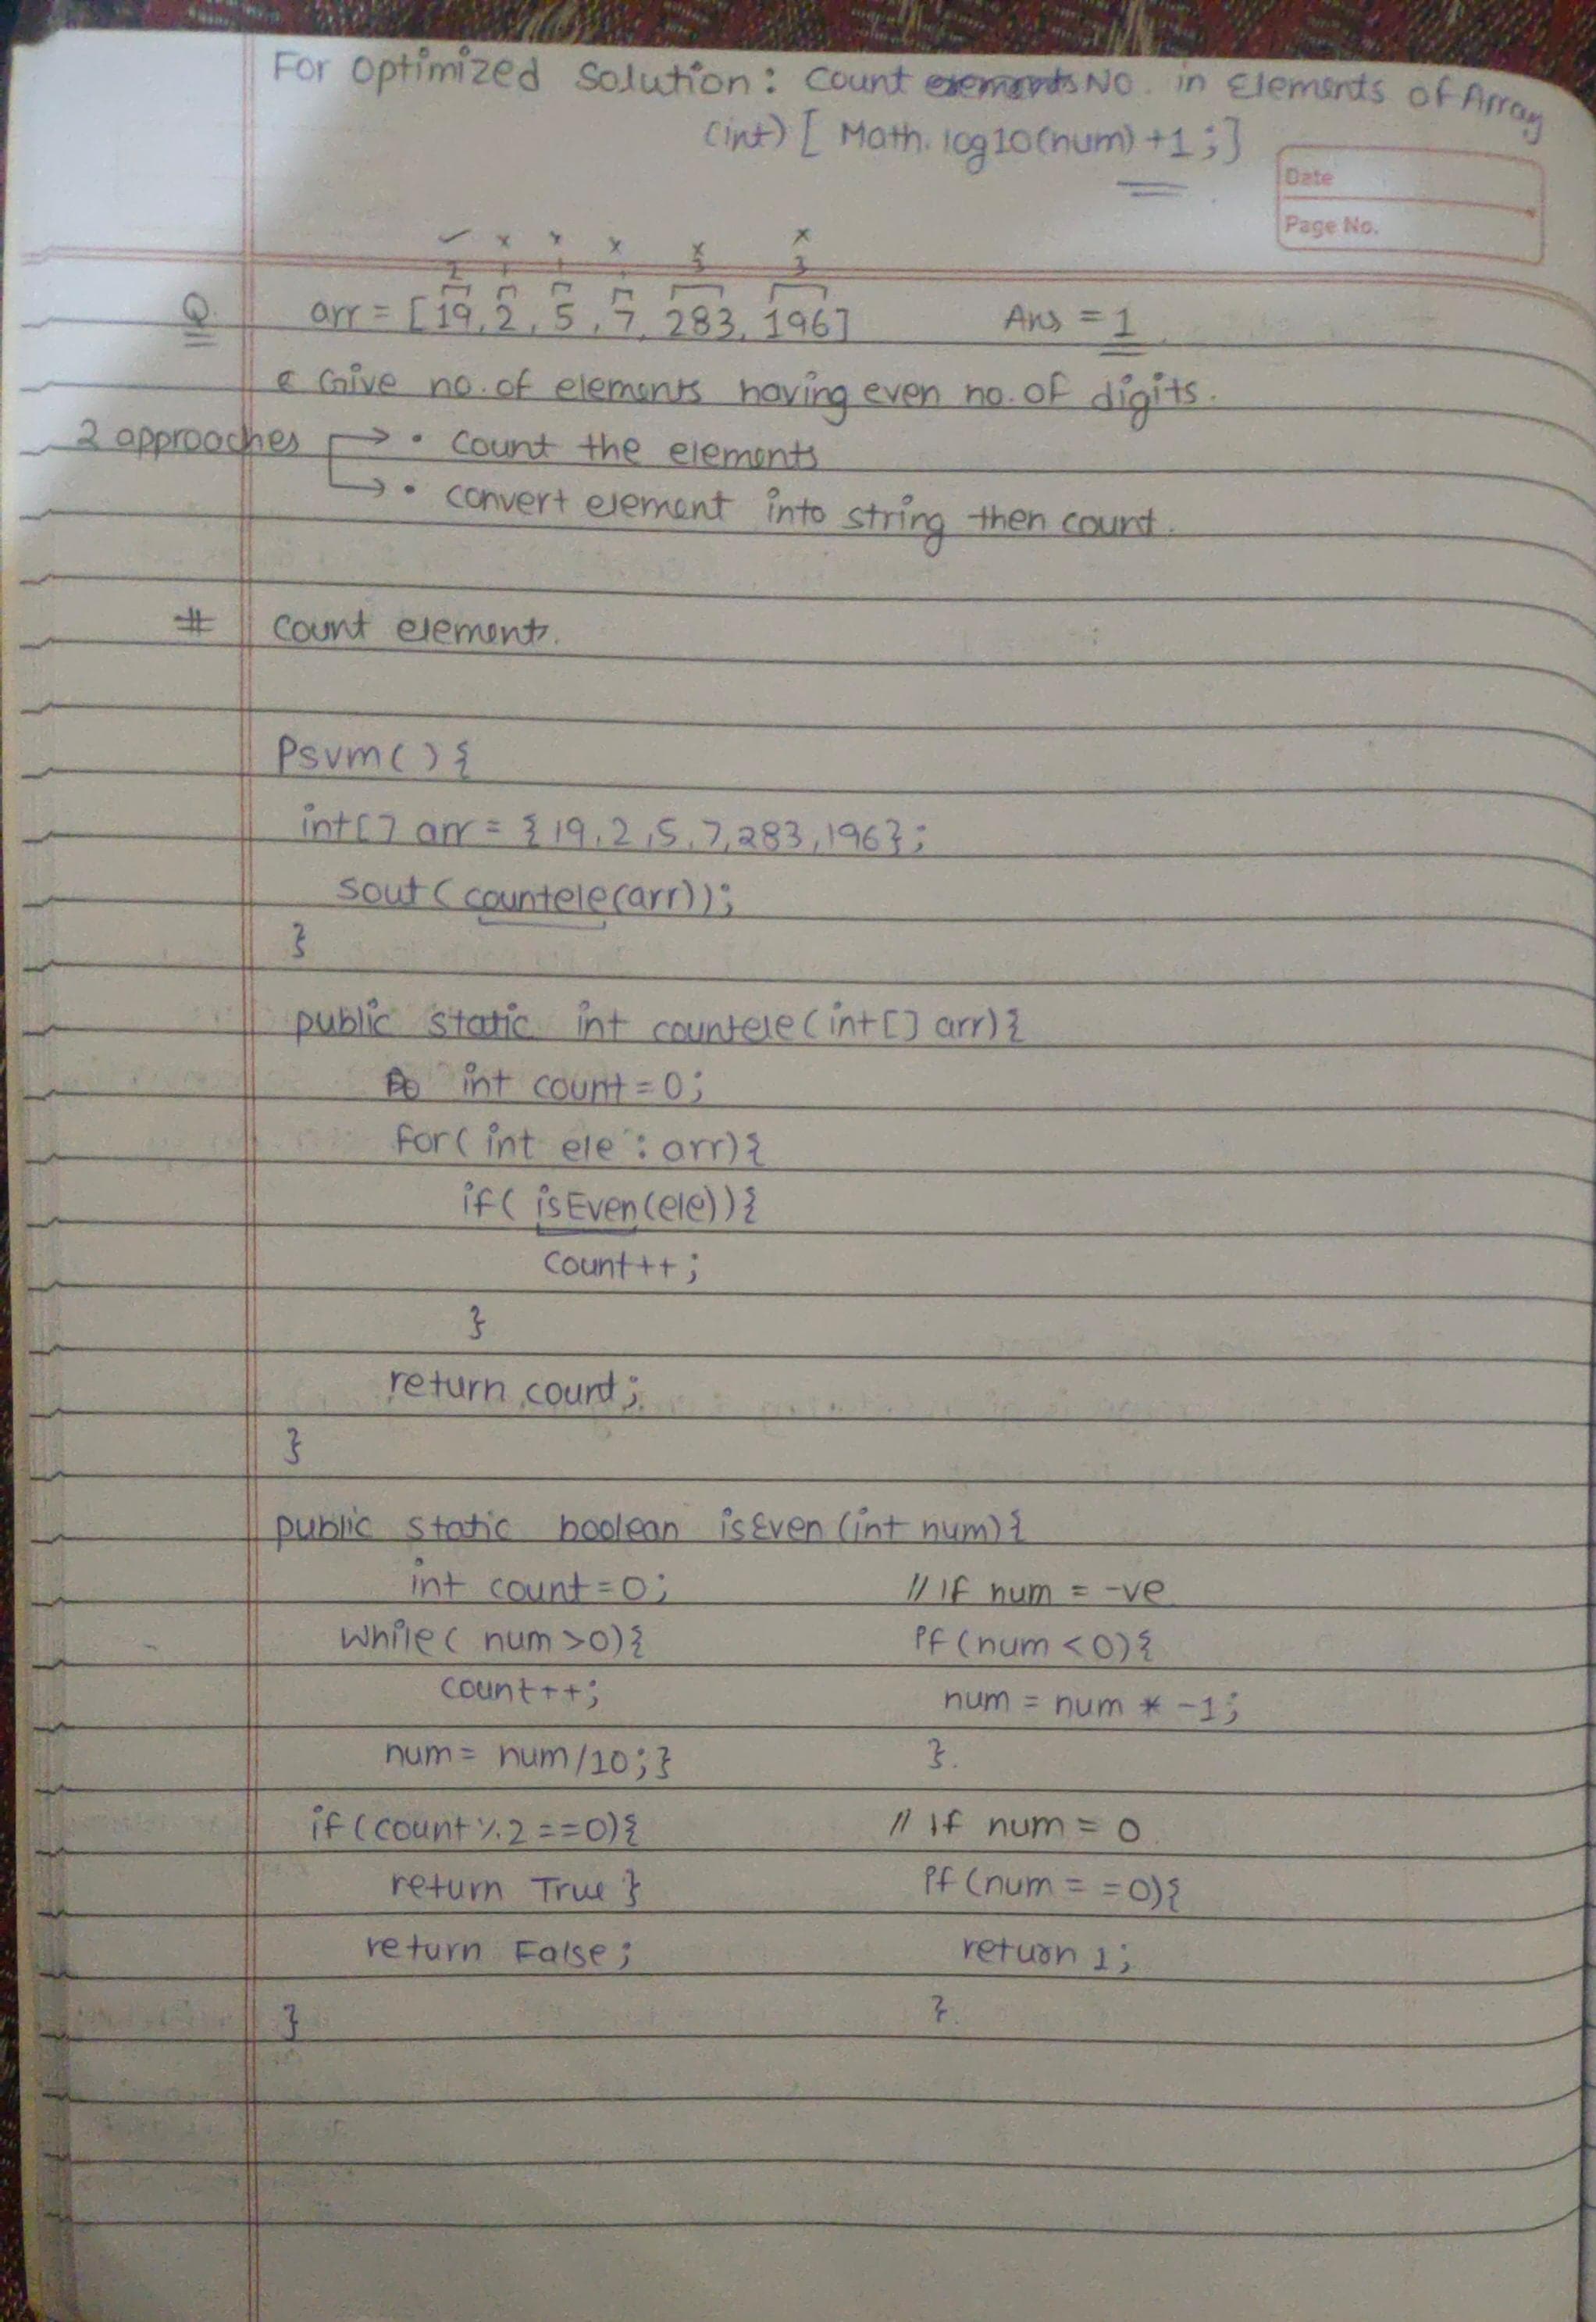 For Optimized Solution: Count No. in Elements of Array
(int) [ Math.log10(num) +1 ; ]
Date
Page No.
✓ x x x x x
2 1 1 1 3 3
Q arr = [19, 2, 5, 7, 283, 196] Ans = 1
Give no. of elements having even no. of digits.
2 approaches → • Count the elements
→ • convert element into string then count.
# Count element.
Psvm( ) {
int[] arr = {19, 2, 5, 7, 283, 196};
sout( countele(arr));
}
public static int countele(int[] arr){
int count = 0;
for( int ele : arr){
if( isEven(ele)){
count++;
}
return count;
}
public static boolean isEven (int num){
int count=0; // If num = -ve
while( num >0){ if (num < 0){
count++; num = num * -1;
num = num/10;} }.
if (count % 2 == 0){ // If num = 0
return True } if (num = =0){
return False; return 1;
} }.